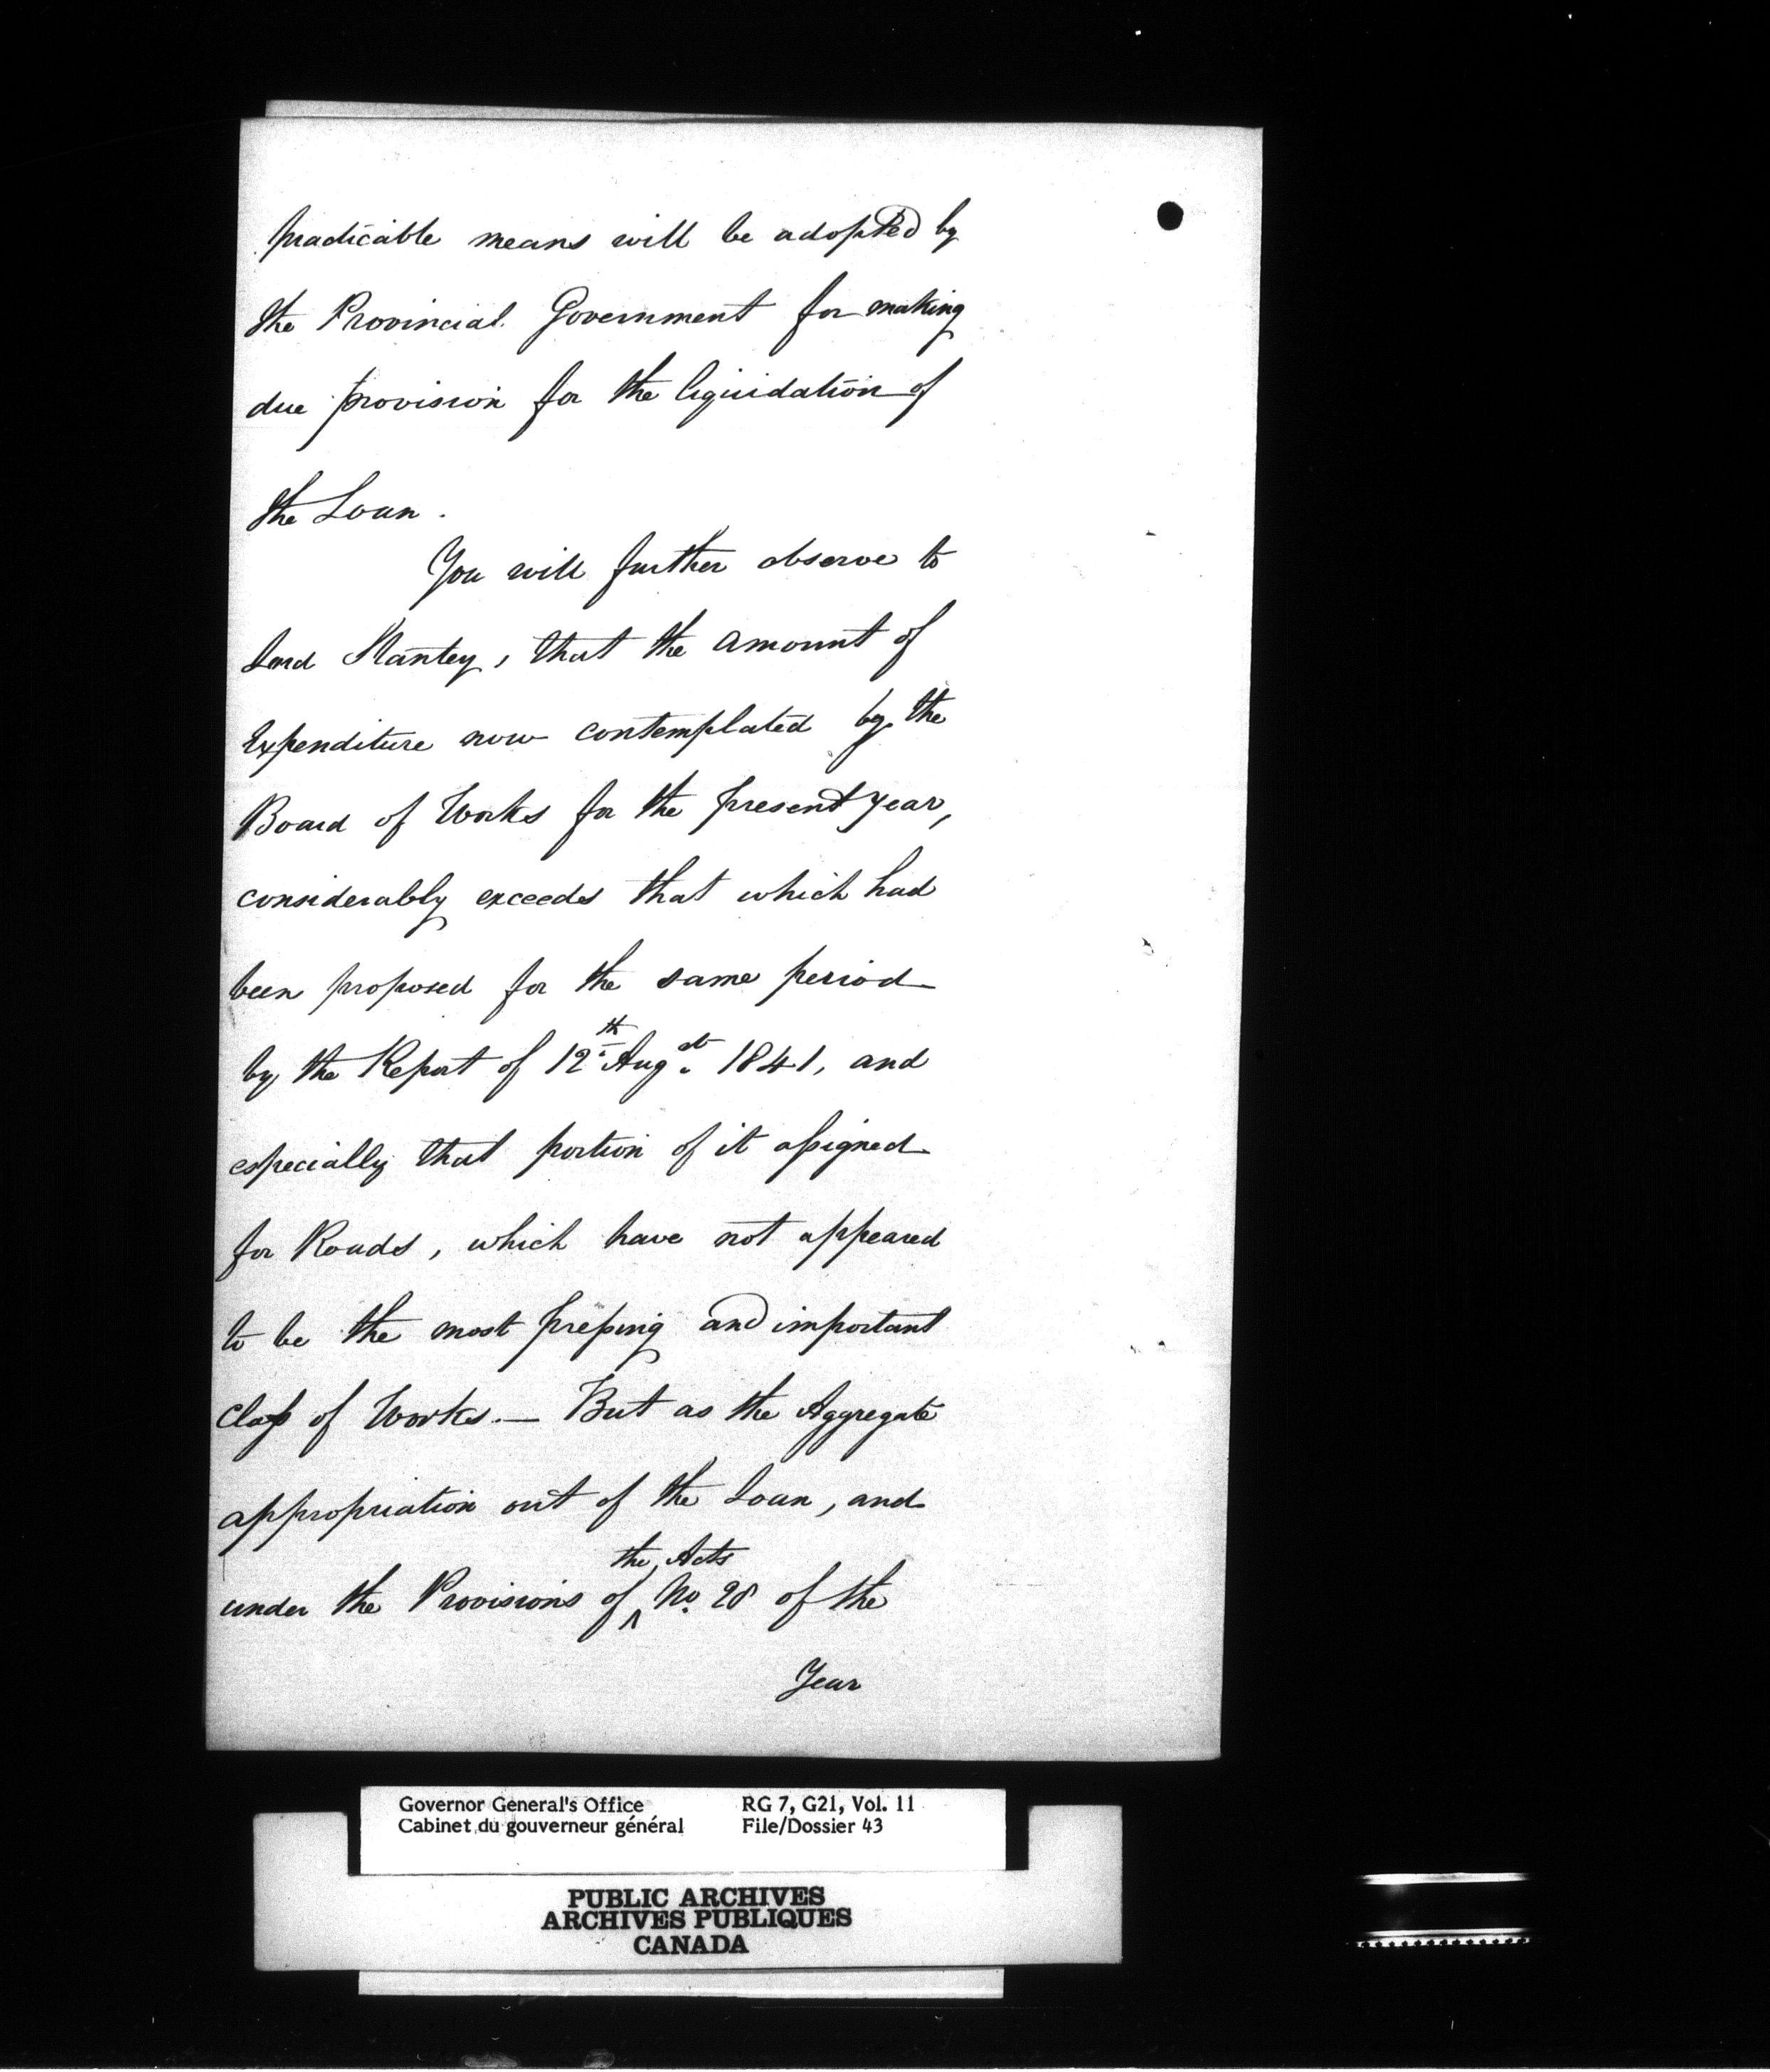 practicable means will be adopted by
the Provincial Government for making
due provision for the liquidation of
the Loan.
You will further observe to
Lord Stanley, that the amount of
Expenditure now contemplated by the
Board of Works for the present year,
considerably exceeds that which had
been proposed for the same period
by the Report of 12th Augst 1841, and
especially that portion of it assigned
for Roads, which have not appeared
to be the most pressing and important
class of Works.— But as the Aggregate
appropriation out of the Loan, and
the Acts
under the Provisions of ^ No. 28 of the
Year
Governor General's Office
Cabinet du gouverneur général
RG 7, G21, Vol. 11
File/Dossier 43
PUBLIC ARCHIVES
ARCHIVES PUBLIQUES
CANADA